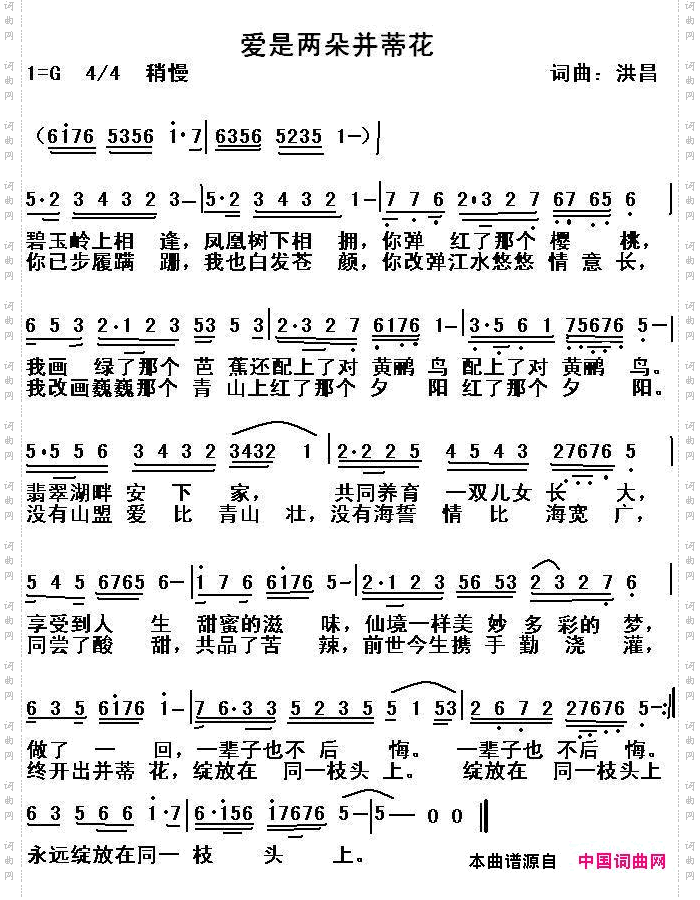 爱是两朵并蒂花
1=G 4/4 稍慢 词曲：洪昌
（6176 5356 1·7|6356 5235 1—）|
5·2 3 4 3 2 3—|5·2 3 4 3 2 1—|7 7 6 2·3 2 7 67 65 6 |
碧玉岭上相 逢，凤凰树下相 拥，你弹 红了那个 樱 桃，
你已步履蹒 跚，我也白发苍 颜，你改弹江水悠悠 情 意 长，
6 5 3 2·1 2 3 53 5 3|2·3 2 7 6176 1—|3·5 6 1 75676 5—|
我画 绿了那个 芭 蕉还配上了对 黄鹂 鸟 配上了对 黄鹂 鸟。
我改画巍巍那个 青 山上红了那个 夕 阳 红了那个 夕 阳。
5·5 5 6 3 4 3 2 3432 1 |2·2 2 5 4 5 4 3 27676 5 |
翡翠湖畔 安 下 家， 共同养育 一双儿女 长 大，
没有山盟 爱 比 青山 壮，没有海誓 情 比 海宽 广，
5 4 5 6765 6—|1 7 6 6176 5—|2·1 2 3 56 53 2 3 2 7 6
享受到人 生 甜蜜的滋 味，仙境一样美 妙 多 彩的 梦，
同尝了酸 甜，共品了苦 辣，前世今生携 手 勤 浇 灌，
6 3 5 6176 1—|7 6·3 3 5 2 3 5 5 1 53|2 6 7 2 27676 5—:|
做了 一 回，一辈子也 不 后 悔。 一辈子也 不后 悔。
终开出并蒂 花，绽放在 同一枝头 上。 绽放在 同一枝头 上
6 3 5 6 6 1·7|6·156 17676 5—|5— 0 0 |
永远绽放在同一 枝 头 上。
本曲谱源自 中国词曲网
词曲网